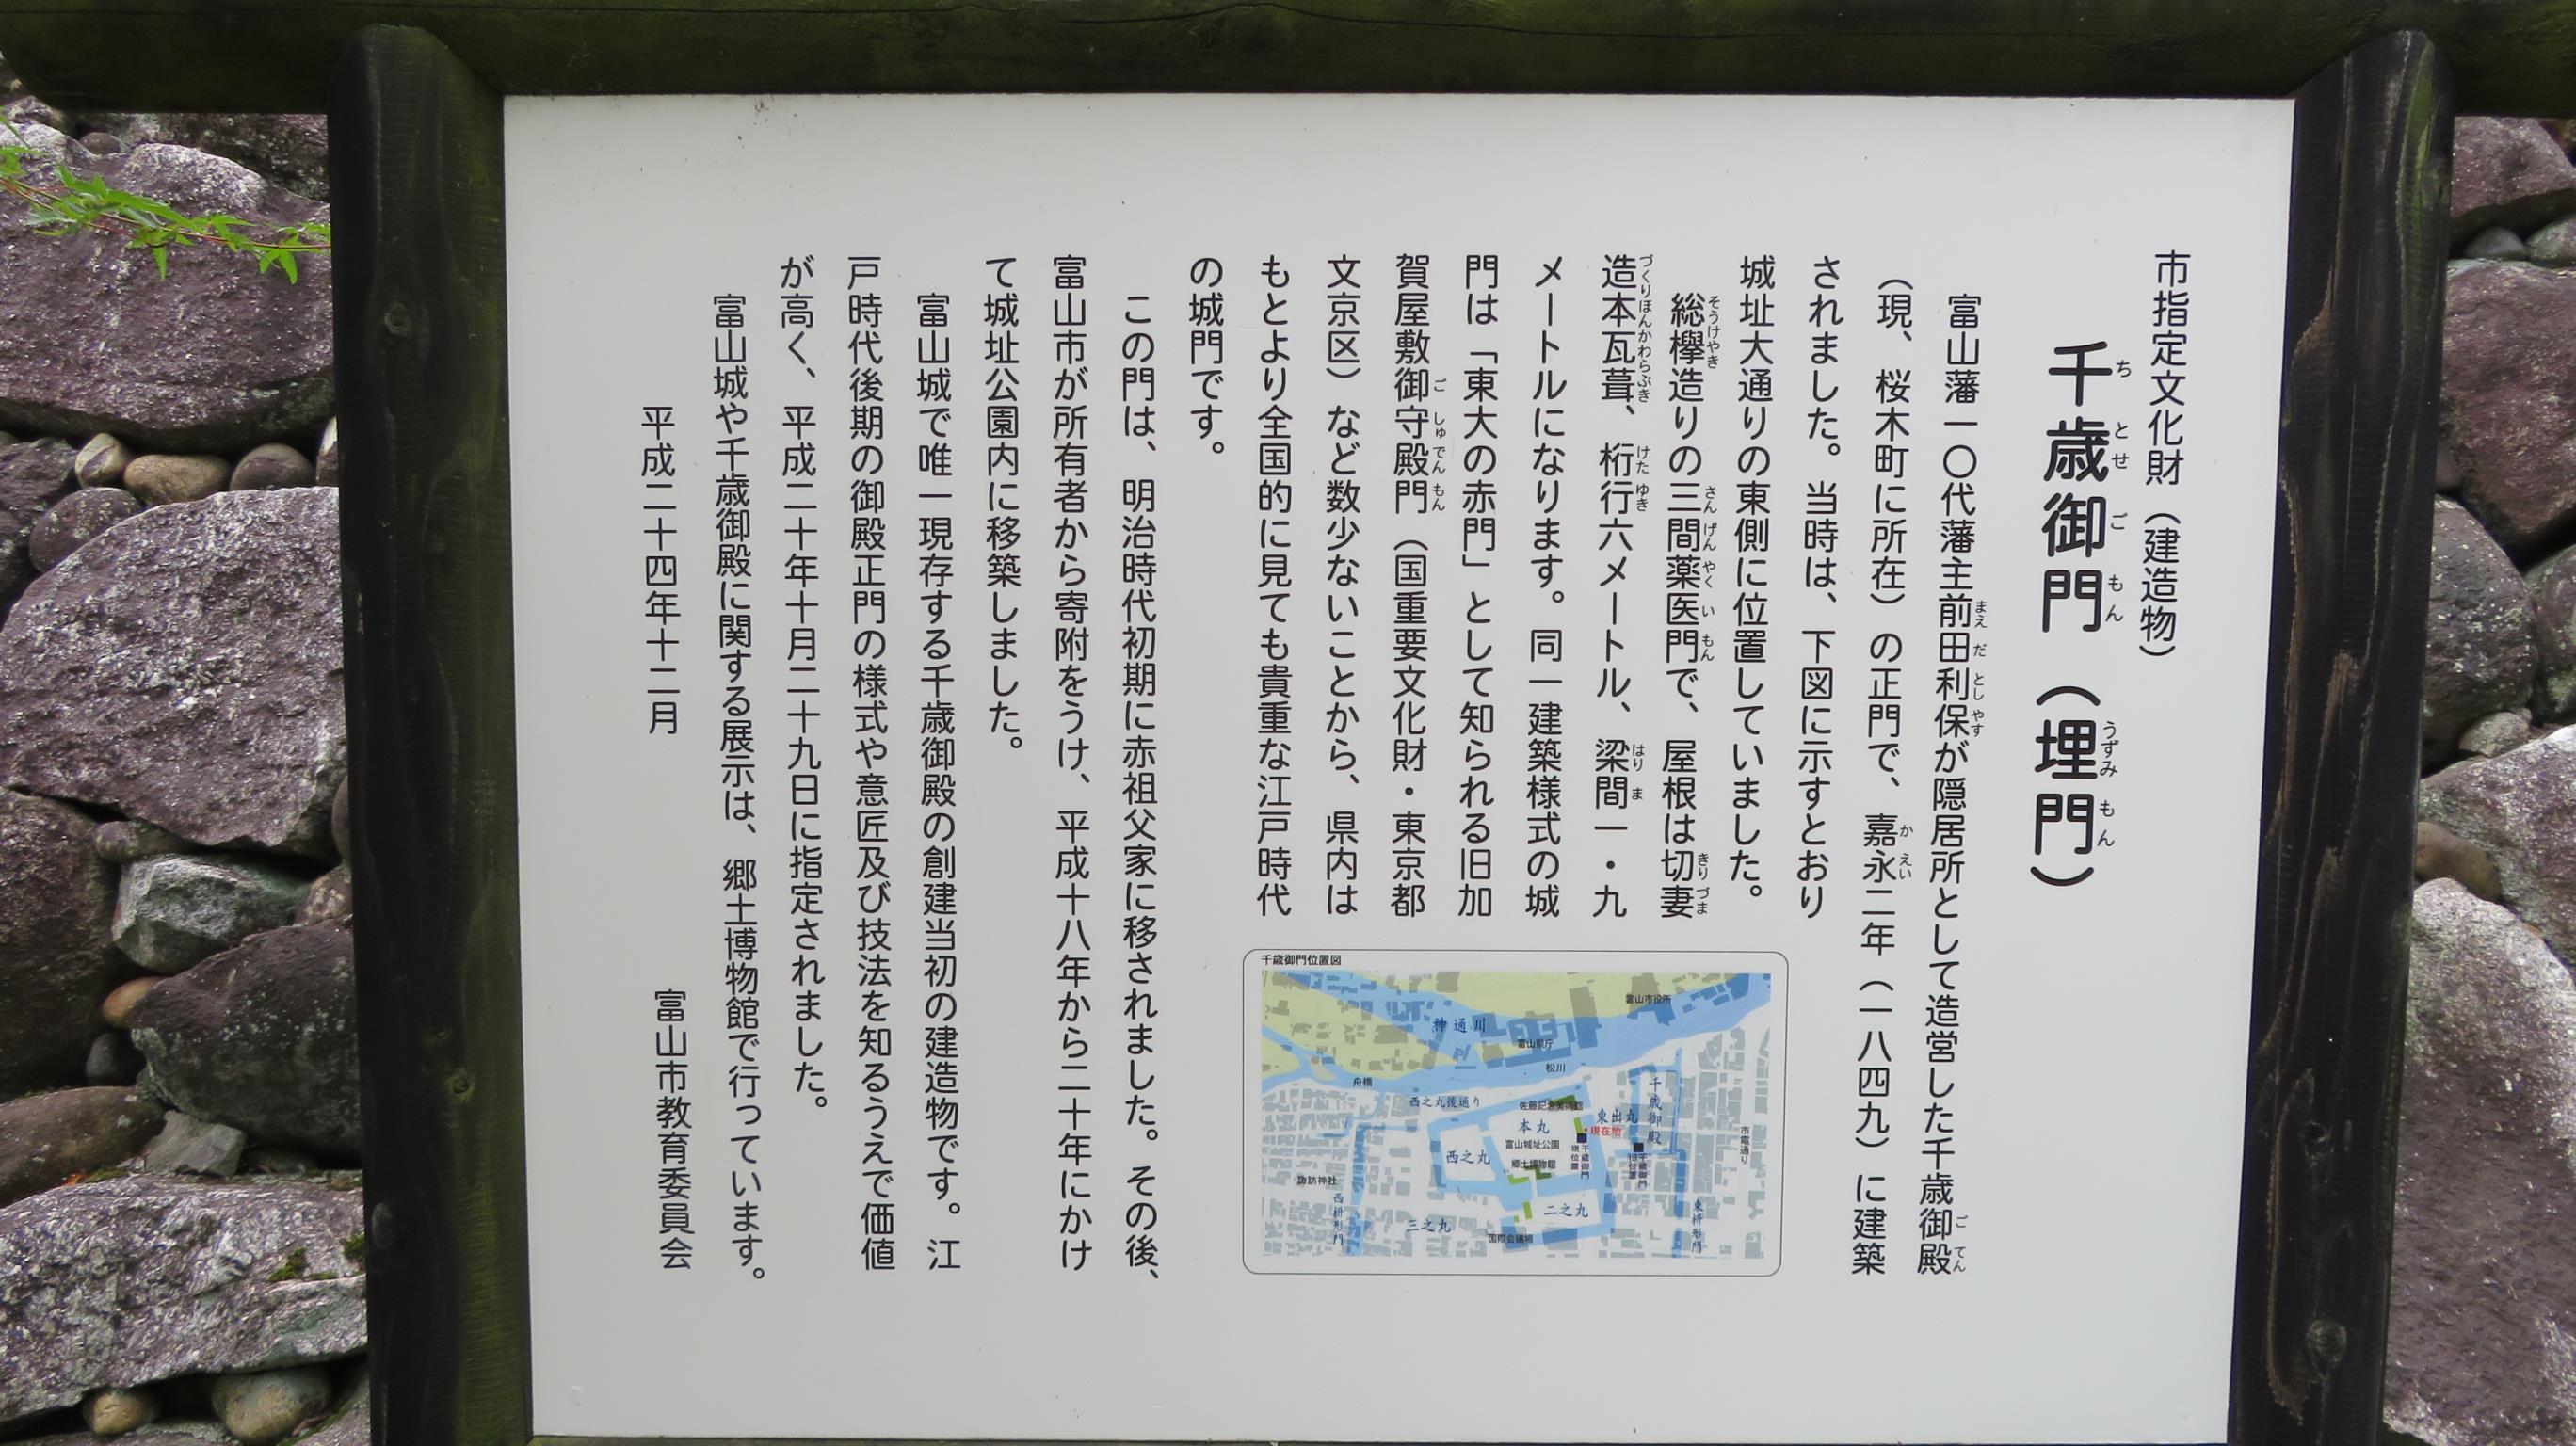 市指定文化財（建造物）
千歳御門（埋門）
ちとせごもん うずみもん
富山藩一〇代藩主前田利保が隠居所として造営した千歳御殿
まえだとしやす ごてん
（現、桜木町に所在）の正門で、嘉永二年（一八四九）に建築
かえい
されました。当時は、下図に示すとおり
城址大通りの東側に位置していました。
総欅造りの三間薬医門で、屋根は切妻
そうけやき さんげんやくいもん きりづま
造本瓦葺、桁行六メートル、梁間一・九
づくりほんかわらぶき けたゆき はりま
メートルになります。同一建築様式の城
門は「東大の赤門」として知られる旧加
賀屋敷御守殿門（国重要文化財・東京都
ごしゅでんもん
文京区）など数少ないことから、県内は
もとより全国的に見ても貴重な江戸時代
の城門です。
この門は、明治時代初期に赤祖父家に移されました。その後、
富山市が所有者から寄附をうけ、平成十八年から二十年にかけ
て城址公園内に移築しました。
富山城で唯一現存する千歳御殿の創建当初の建造物です。江
戸時代後期の御殿正門の様式や意匠及び技法を知るうえで価値
が高く、平成二十年十月二十九日に指定されました。
富山城や千歳御殿に関する展示は、郷土博物館で行っています。
平成二十四年十二月
富山市教育委員会
千歳御門位置図
富山市役所
神通川
富山県庁
松川
舟橋
西之丸後通り
佐藤記念美術館
千歳御殿
東出丸
現在地
本丸
富山城址公園
千歳御門
現位置
千歳御門
旧位置
市電通り
西之丸
郷土博物館
諏訪神社
西枡形門
三之丸
二之丸
東枡形門
国際会議場